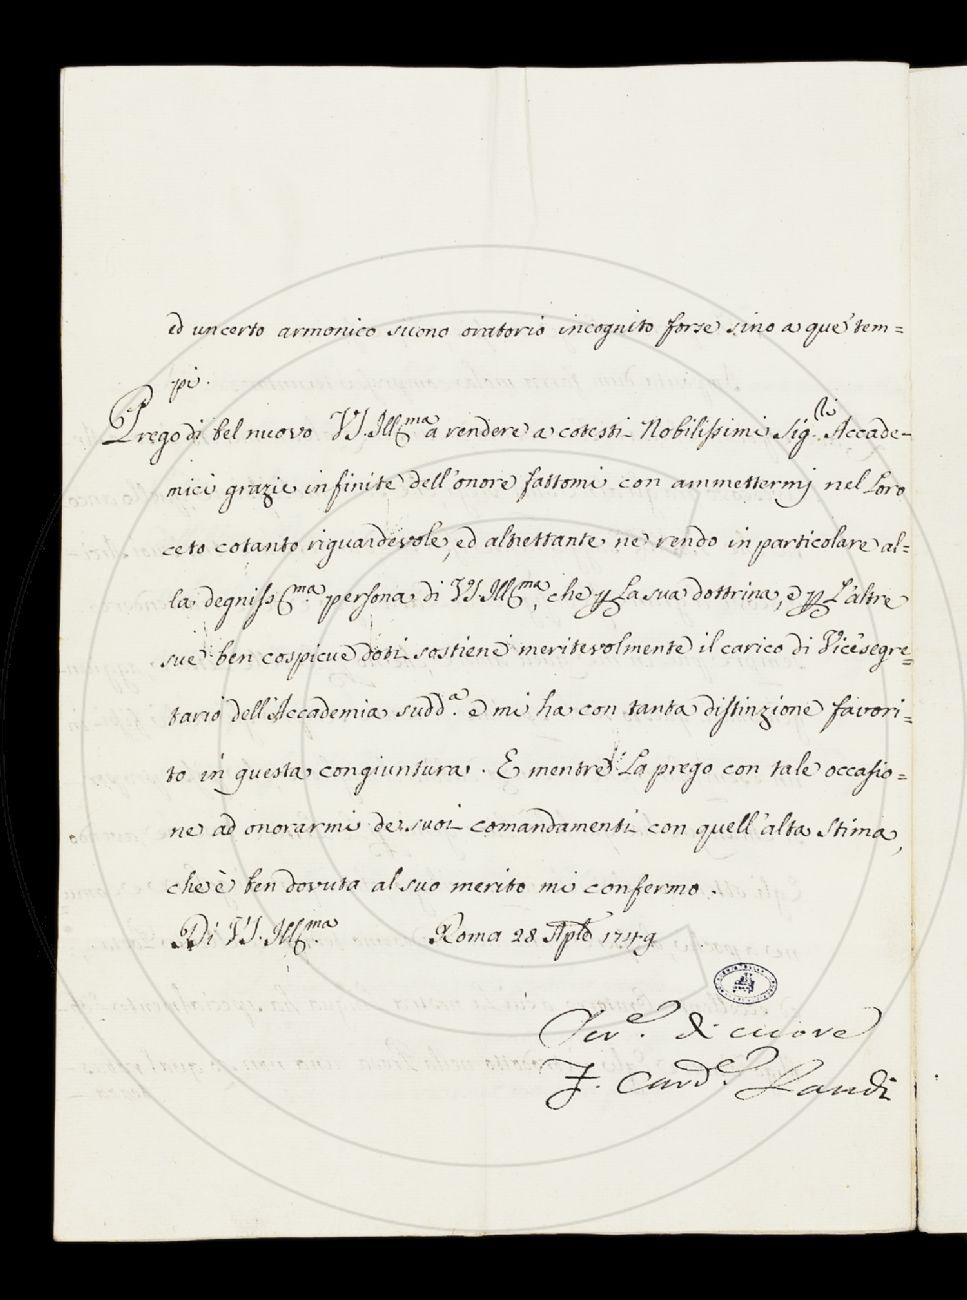 ed un certo armonico suono oratorio incognito forse sino a que' tem=
pi.
Prego di bel nuovo VS. Illma a rendere a cotesti Nobilissimi Sig.li Accade-
mici grazie infinite dell'onore fattomi con ammettermi nel Loro
ceto cotanto riguardevole, ed altrettante ne rendo in particolare al=
la degnissma persona di VS. Illma, che p La sua dottrina, e p L'altre
sue ben cospicue doti sostiene meritevolmente il carico di Vicesegre=
tario dell'Accademia sudda. e mi ha con tanta distinzione favori=
to in questa congiuntura. E mentre La prego con tale occasio=
ne ad onorarmi de suoi comandamenti con quell'alta stima,
che è ben dovuta al suo merito mi confermo.
Di VS. Illma. Roma 28. 1749
Serre. di cuore
F. Carde. Landi